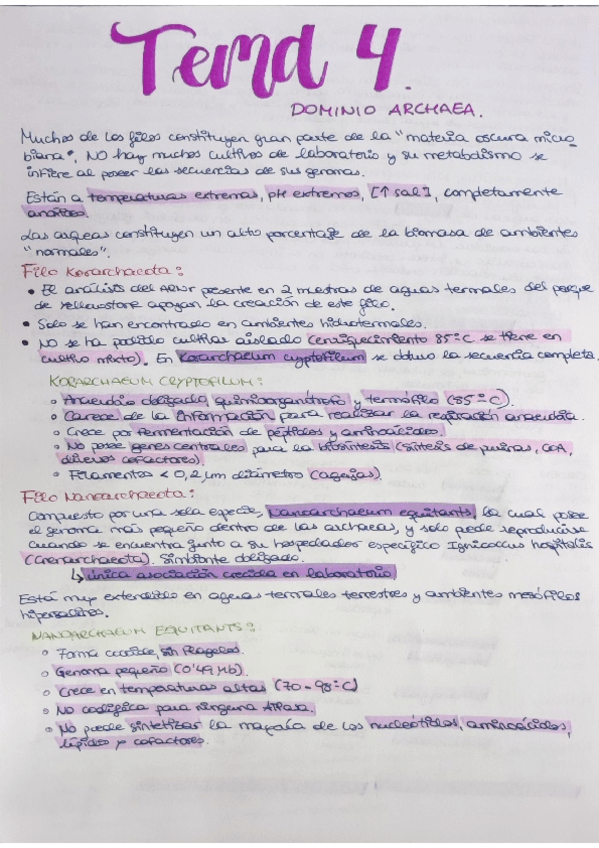 Tema 4.
DOMINIO ARCHAEA.
Muchos de los filos constituyen gran parte de la "materia oscura micro
biana". NO hay muchos cultivos de laboratorio y su metabolismo se
infiere al poseer las secuencias de sus genomas.
Están a temperaturas extremas, pH extremos, [↑ sal], completamente
anóxicos.
Las arqueas constituyen un alto porcentaje de la biomasa de ambientes
"normales".
Filo Korarchaeota:
• El análisis del ADNr presente en 2 muestras de aguas termales del parque
de Yellowstone apoyan la creación de este filo.
• Solo se han encontrado en ambientes hidrotermales.
• NO se ha podido cultivar aislado (enriquecimiento 85°C se tiene en
cultivo mixto). En Korarchaeum cryptofilum se obtuvo la secuencia completa.
KORARCHAEUM CRYPTOFILUM:
o Anaerobio obligado, quimiorganótrofo y termófilo (85°C).
o Carece de la información para realizar la respiración anaerobia.
o Crece por fermentación de péptidos y aminoácidos.
o No posee genes centrales para la biosíntesis (síntesis de purinas, CoA,
diversos cofactores).
o Filamentos < 0,2 µm diámetro (agujas).
Filo Nanoarchaeota:
Compuesto por una sola especie, Nanoarchaeum equitants, la cual posee
el genoma más pequeño dentro de las archaeas, y solo puede reproducirse
cuando se encuentra junto a su hospedador específico Ignicoccus hospitalis
(Crenarchaeota). Simbionte obligado.
↳ única asociación crecida en laboratorio
Está muy extendido en aguas termales terrestres y ambientes mesófilos
hipersalinos.
NANOARCHAEUM EQUITANTS:
o Forma cocoide, sin flagelos.
o Genoma pequeño (0'49 Mb).
o Crece en temperaturas altas (70 - 98°C)
o No codifica para ninguna ATPasa.
o No puede sintetizar la mayoría de los nucleótidos, aminoácidos,
lípidos y cofactores.